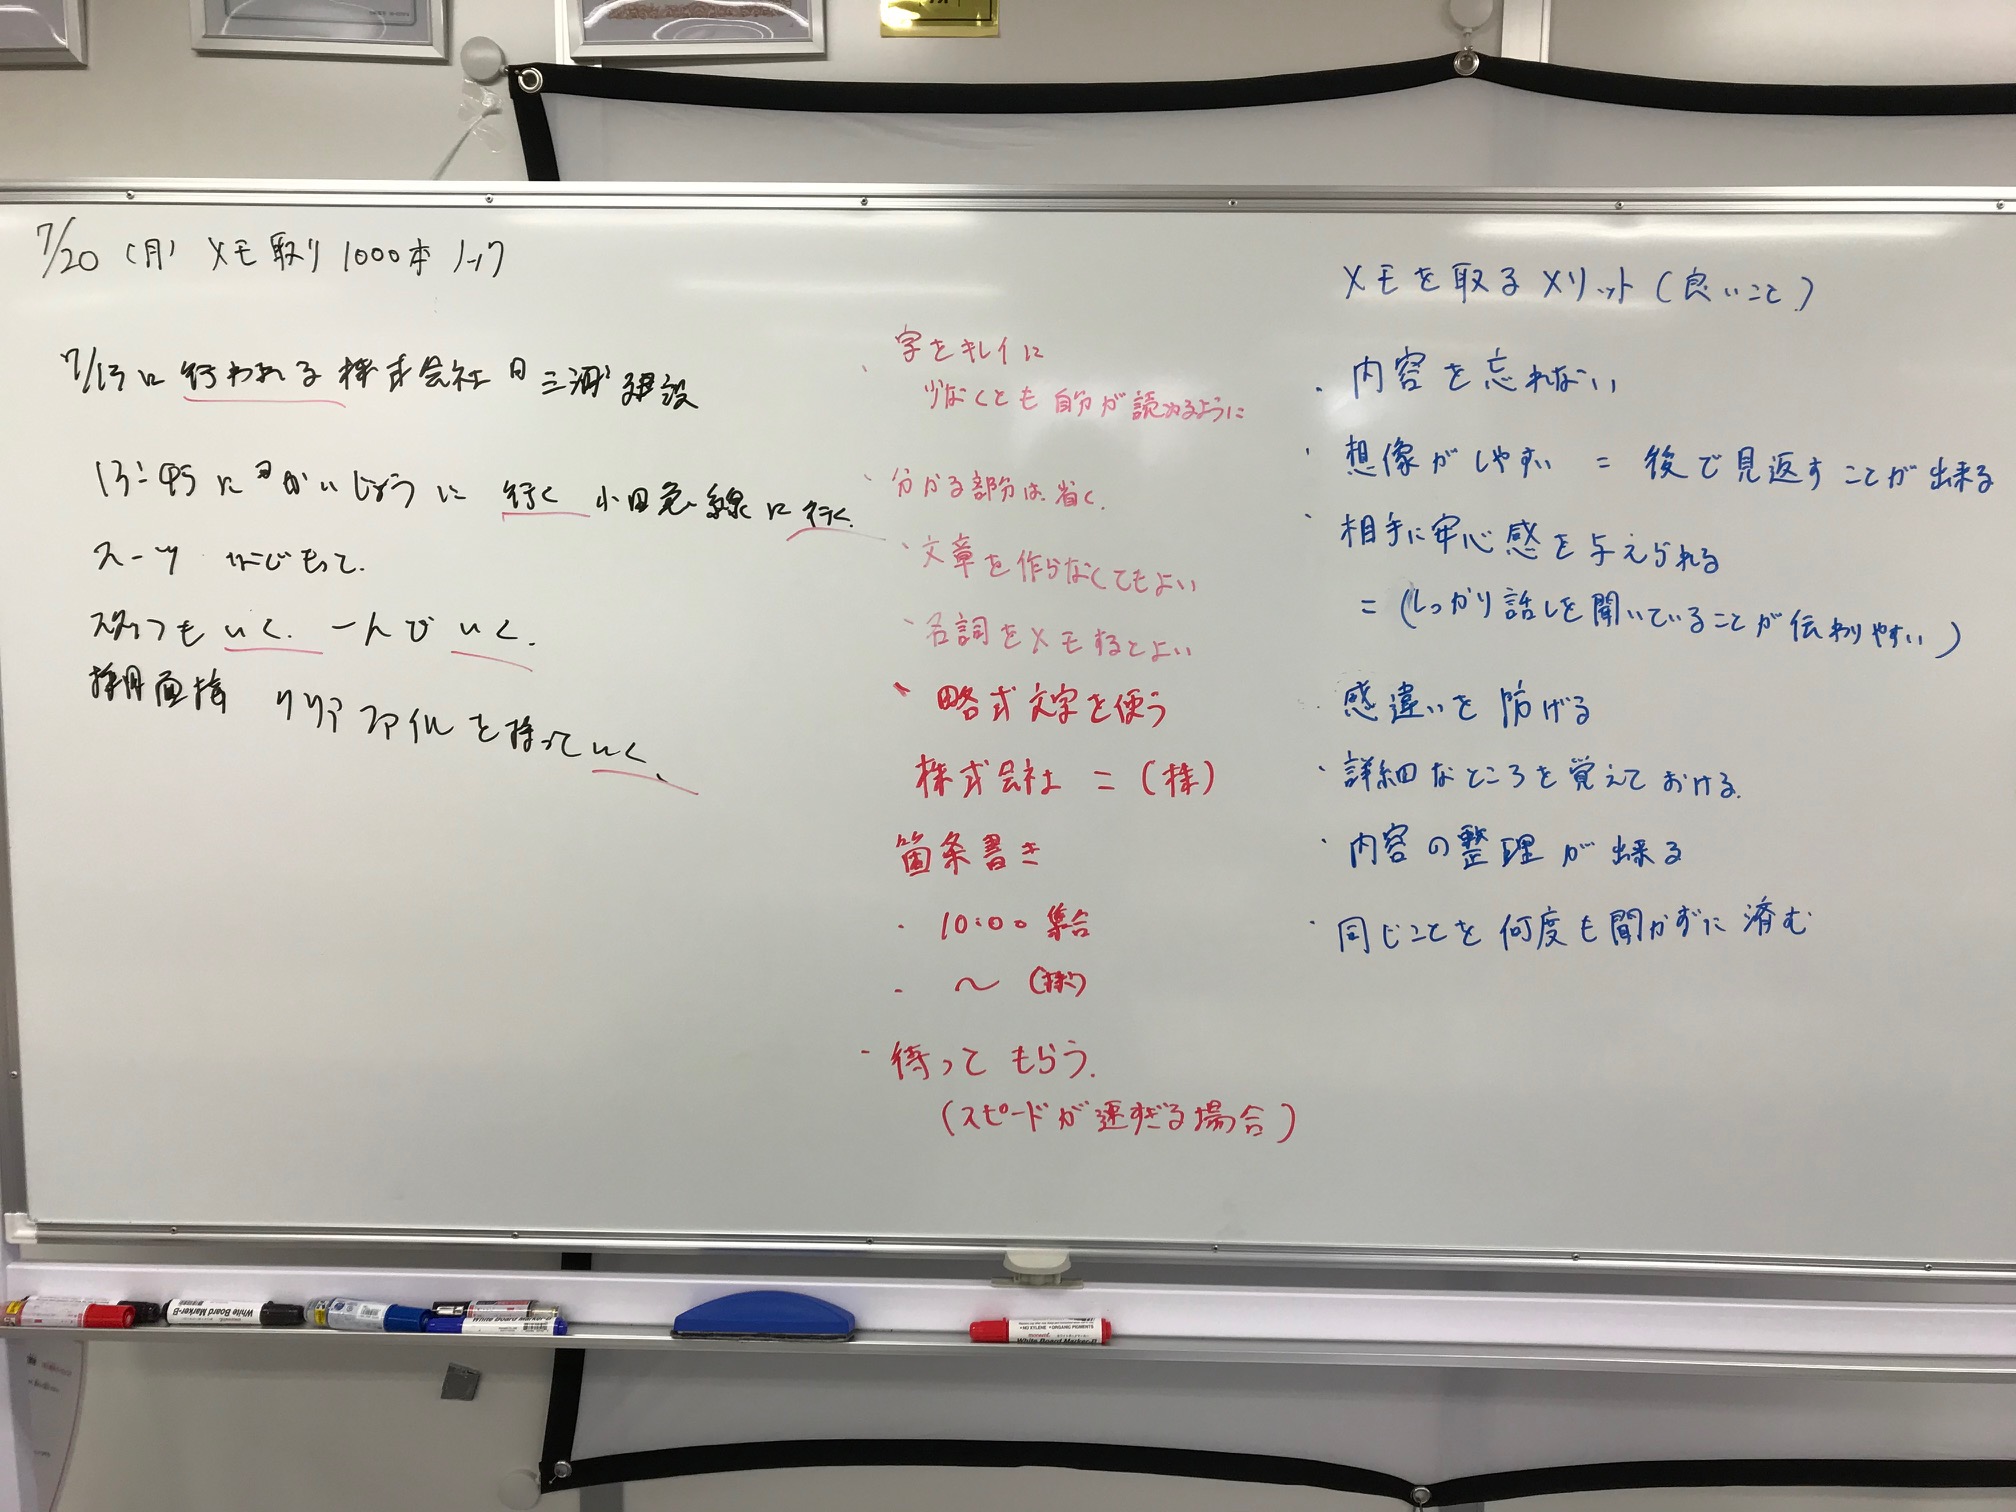 7/20 (月) メモ取り 1000本ノック
に 行われる 株式会社 三浦建設
13:45に かいじょうに 行く 小田急線に行く.
スーツ
スタッフも いく. いく.
採用面接 クリアファイルを持っていく、
字をキレイに
少なくとも自分が読めるように
・分かる部分は省く.
・文章を作らなくてもよい
・名詞をメモするとよい
・略式文字を使う
株式会社 = (株)
箇条書き
・10:00 集合
・〜 (株)
・待ってもらう.
(スピードが速すぎる場合)
メモを取るメリット(良いこと)
・内容を忘れない
・想像がしやすい = 後で見返すことが出来る
・相手に安心感を与えられる
= (しっかり話しを聞いていることが伝わりやすい)
・感違いを防げる
・詳細なところを覚えておける.
・内容の整理が出来る
・同じことを何度も聞かずに済む
White Board Marker-B
White Board Marker-B